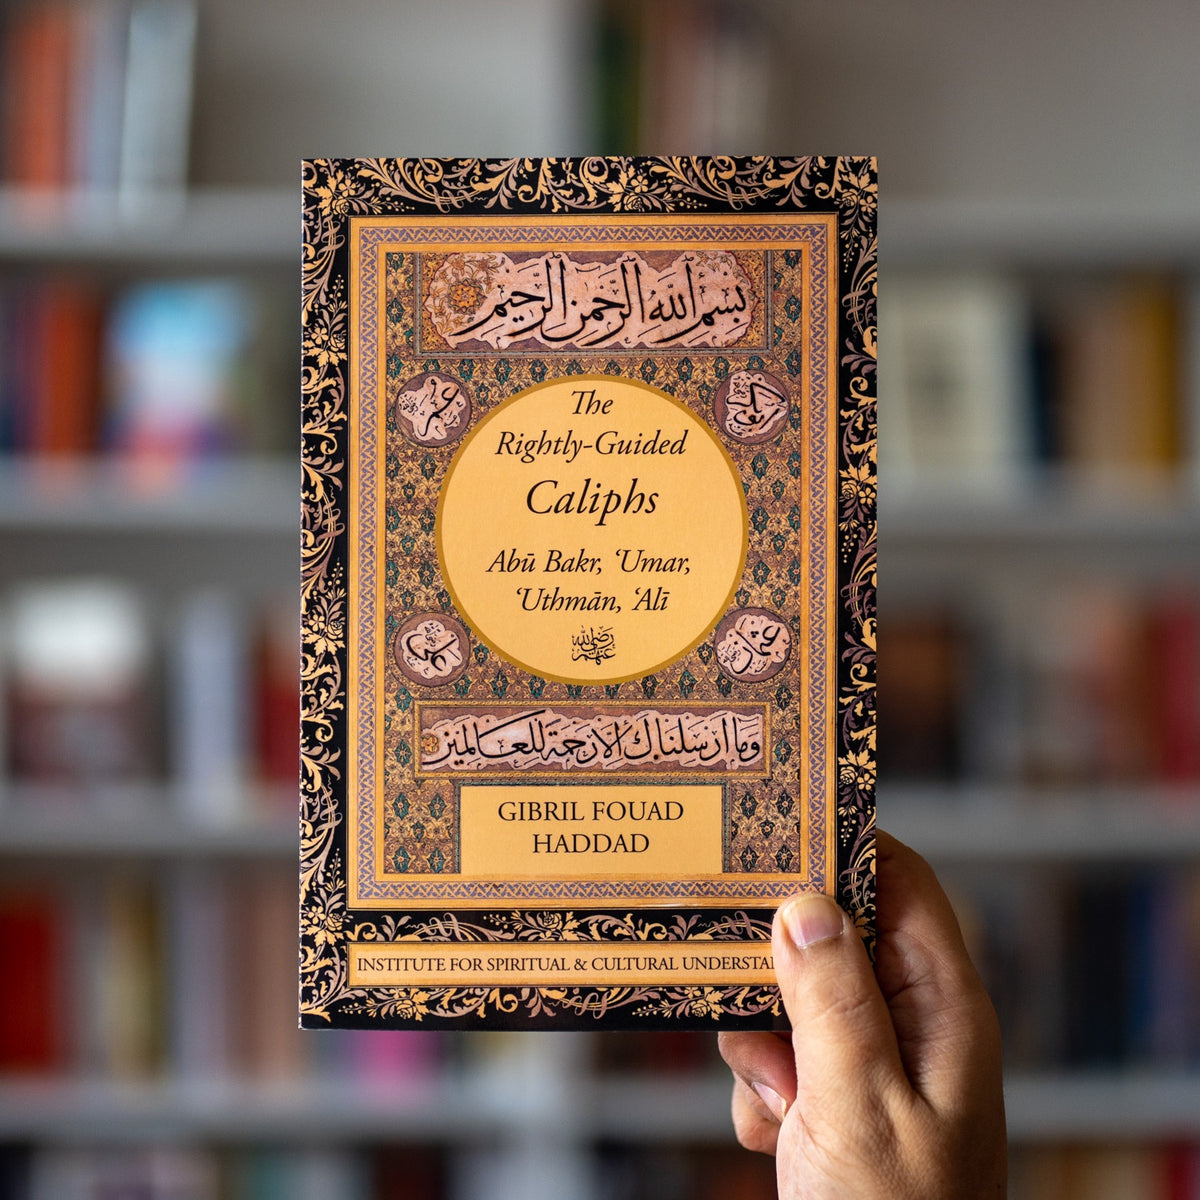 بسم الله الرحمن الرحيم
عمر
ابوبكر
The
Rightly-Guided
Caliphs
Abū Bakr, ‘Umar,
‘Uthmān, ‘Alī
رضي الله
عنهم
علي
عثمان
وما أرسلناك إلا رحمة للعالمين
GIBRIL FOUAD
HADDAD
INSTITUTE FOR SPIRITUAL & CULTURAL